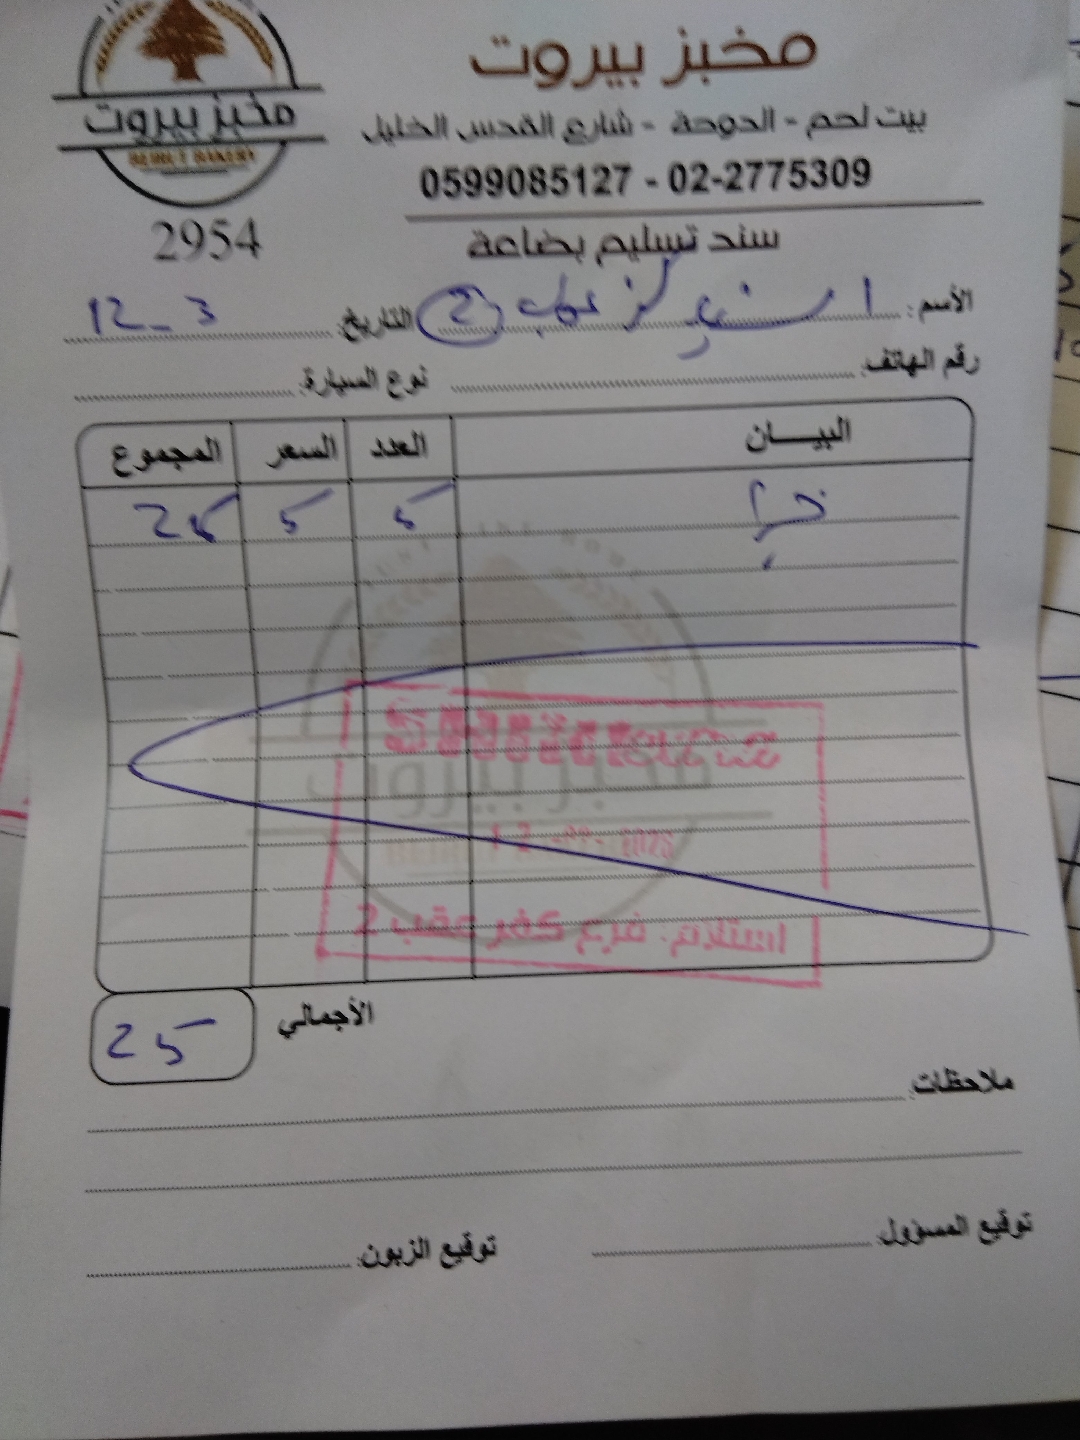 مخبز بيروت
BEIRUT BAKERY
2954
مخبز بيروت
بيت لحم - الدوحة - شارع القدس الخليل
0599085127 - 02-2775309
سند تسليم بضاعة
الأسم: 2
التاريخ: 12-3
رقم الهاتف:
نوع السيارة:
البيـــان العدد السعر المجموع
خبز 5 5 25
مخبز بيروت
استلام: فرع كفر عقب 2
الأجمالي 25
ملاحظات:
توقيع المسؤول:
توقيع الزبون: